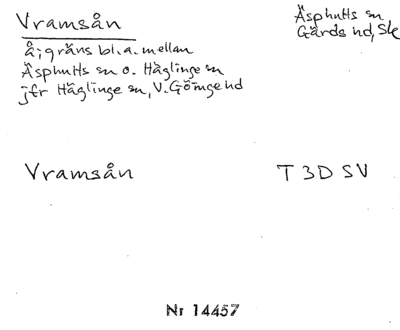 Vramsån
Äsphults sn
Gärds hd, Sk
å; gräns bl.a. mellan
Äsphults sn o. Häglinge sn
jfr Häglinge sn, V. Göinge hd
Vramsån
T 3D SV
Nr 14457